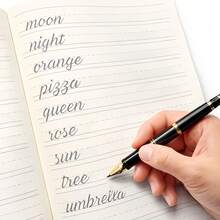 moon
night
orange
pizza
queen
rose
sun
tree
umbrella